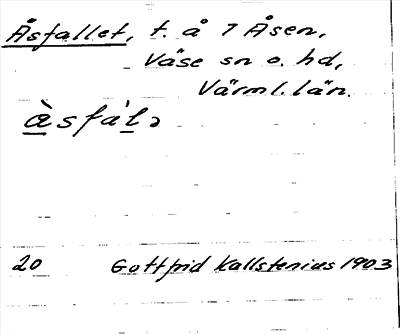 Åsfallet, t. å 7 Åsen,
Väse sn o. hd,
Värml. län.
å̀sfàlə
20 Gottfrid Kallstenius 1903